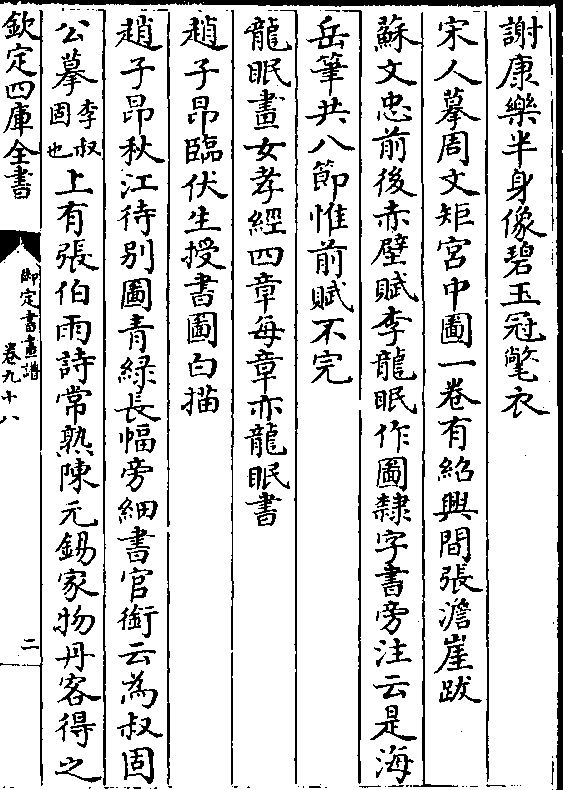 謝康樂半身像碧玉冠氅衣
宋人摹周文矩宮中圖一卷有紹興間張澹崖跋
蘇文忠前後赤壁賦李龍眠作圖隸字書旁注云是海
岳筆共八節惟前賦不完
龍眠畫女孝經四章每章亦龍眠書
趙子昂臨伏生授書圖白描
趙子昂秋江待別圖青綠長幅旁細書官銜云為叔固
公摹李叔固也上有張伯雨詩常熟陳元錫家物丹客得之
欽定四庫全書
御定書畫譜
卷九十八
二